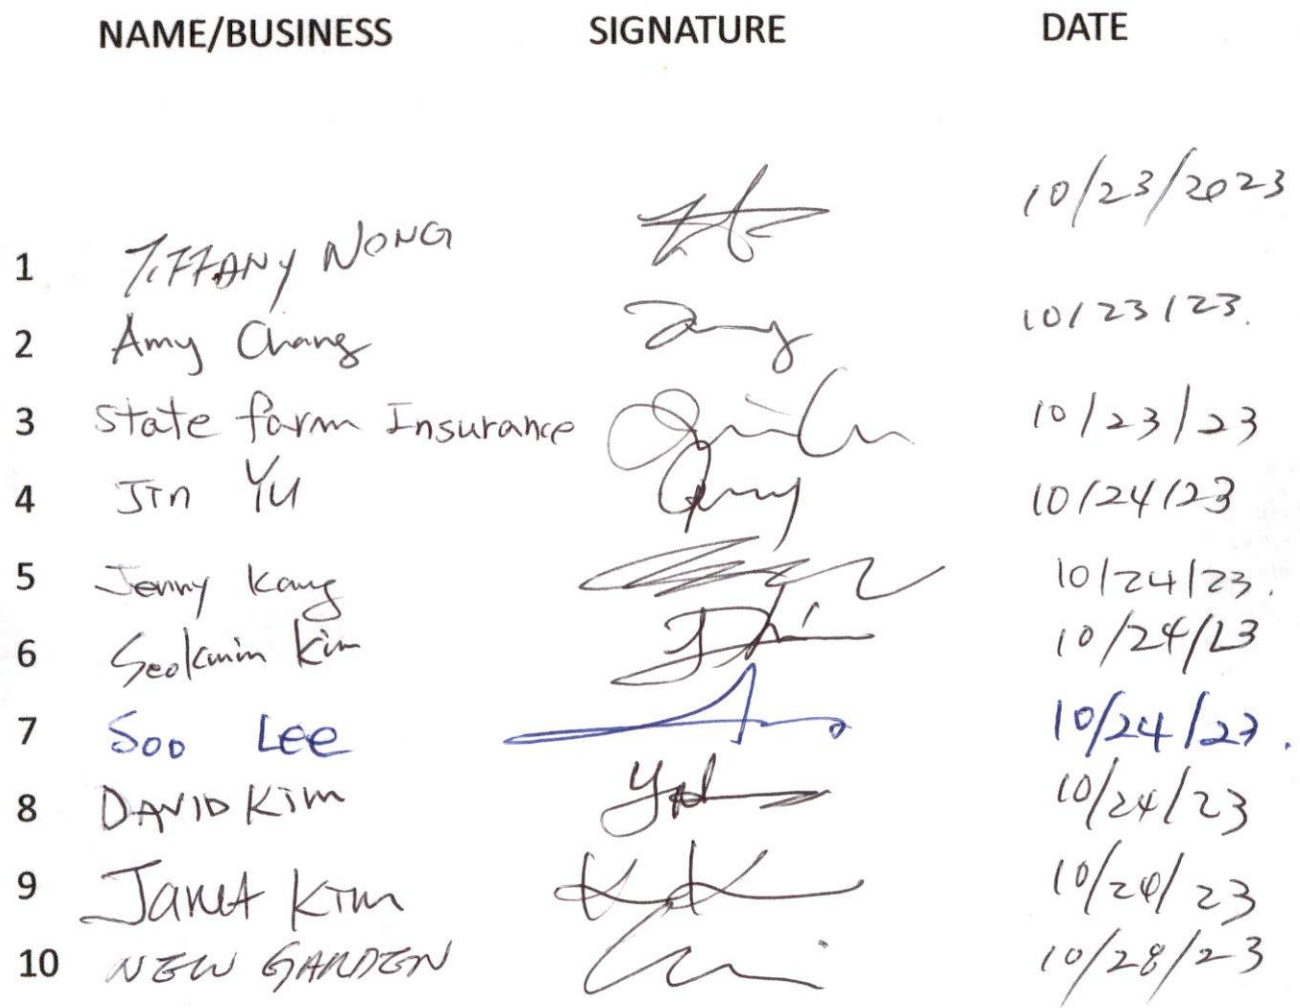 NAME/BUSINESS SIGNATURE DATE
1 TIFFANY NONG 10/23/2023
2 Amy Chang 10/23/23.
3 State farm Insurance 10/23/23
4 Jin Yu 10/24/23
5 Jenny Kang 10/24/23.
6 Seokmin Kim 10/24/23
7 Soo Lee 10/24/23.
8 DAVID KIM 10/24/23
9 Janet Kim 10/24/23
10 NEW GARDEN 10/28/23